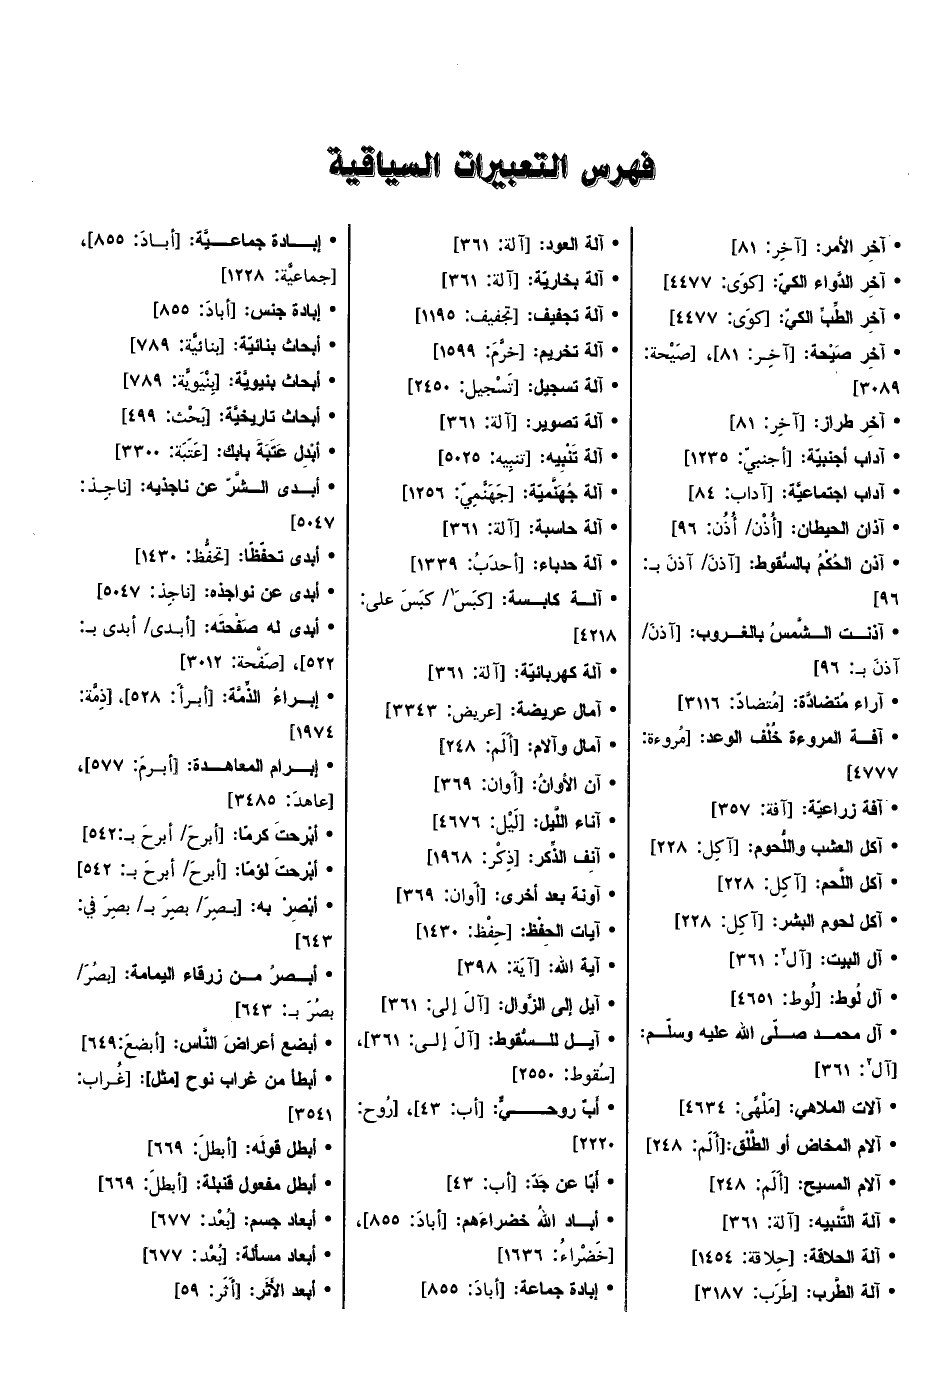 فهرس التعبيرات السياقية
• آخر الأمر: [آخِر: ٨١]
• آخر الدَّواء الكيّ: [كوَى: ٤٤٧٧]
• آخر الطِّبِّ الكيّ: [كوَى: ٤٤٧٧]
• آخر صَيْحة: [آخِر: ٨١]، [صَيْحة:
٣٠٨٩]
• آخر طراز: [آخِر: ٨١]
• آداب أجنبيّة: [أجنبيّ: ١٢٣٥]
• آداب اجتماعيَّة: [آداب: ٨٤]
• آذان الحيطان: [أُذْن/ أُذُن: ٩٦]
• آذن الحُكْمُ بالسُّقوط: [آذنَ/ آذنَ بـ:
٩٦]
• آذنـت الـشَّمسُ بالغـروب: [آذنَ/
آذنَ بـ: ٩٦]
• آراء مُتضادَّة: [مُتضادّ: ٣١١٦]
• آفـة المروءة خُلْف الوعد: [مُروءة:
٤٧٧٧]
• آفة زراعيّة: [آفة: ٣٥٧]
• آكل العشب واللُّحوم: [آكِل: ٢٢٨]
• آكل اللَّحم: [آكِل: ٢٢٨]
• آكل لحوم البشر: [آكِل: ٢٢٨]
• آل البيت: [آل٢: ٣٦١]
• آل لُوط: [لُوط: ٤٦٥١]
• آل محمد صلّى الله عليه وسلّم:
[آل٢: ٣٦١]
• آلات الملاهي: [مَلْهًى: ٤٦٣٤]
• آلام المخاض أو الطَّلْق:[أَلَم: ٢٤٨]
• آلام المسيح: [أَلَم: ٢٤٨]
• آلة التَّنبيه: [آلة: ٣٦١]
• آلة الحلاقة: [حِلاقة: ١٤٥٤]
• آلة الطَّرب: [طَرَب: ٣١٨٧]
• آلة العود: [آلة: ٣٦١]
• آلة بخاريّة: [آلة: ٣٦١]
• آلة تجفيف: [تجفيف: ١١٩٥]
• آلة تخريم: [خرَّمَ: ١٥٩٩]
• آلة تسجيل: [تَسْجيل: ٢٤٥٠]
• آلة تصوير: [آلة: ٣٦١]
• آلة تَنْبِيه: [تنبِيه: ٥٠٢٥]
• آلة جُهَنَّميّة: [جَهَنَّمِيّ: ١٢٥٦]
• آلة حاسبة: [آلة: ٣٦١]
• آلة حدباء: [أحدَبُ: ١٣٣٩]
• آلـة كابسة: [كبَسَ١/ كبَسَ على:
٤٢١٨]
• آلة كهربائيّة: [آلة: ٣٦١]
• آمال عريضة: [عريض: ٣٣٤٣]
• آمال وآلام: [أَلَم: ٢٤٨]
• آن الأوانُ: [أوان: ٣٦٩]
• آناء اللَّيل: [لَيْل: ٤٦٧٦]
• آنف الذِّكر: [ذِكْر: ١٩٦٨]
• آونة بعد أخرى: [أوان: ٣٦٩]
• آيات الحفْظ: [حِفْظ: ١٤٣٠]
• آية الله: [آيَة: ٣٩٨]
• آيل إلى الزَّوال: [آلَ إلى: ٣٦١]
• آيـل للـسُّقوط: [آلَ إلـى: ٣٦١]،
[سُقوط: ٢٥٥٠]
• أبّ روحـــيٌّ: [أب: ٤٣]، [رُوح:
٢٢٢٠]
• أبًا عن جَدّ: [أب: ٤٣]
• أبـاد اللهُ خضراءَهم: [أبادَ: ٨٥٥]،
[خَضْراءُ: ١٦٣٦]
• إبادة جماعة: [أبادَ: ٨٥٥]
• إبــادة جماعــيَّة: [أبـادَ: ٨٥٥]،
[جماعيَّة: ١٢٢٨]
• إبادة جنس: [أبادَ: ٨٥٥]
• أبحاث بنائيّة: [بنائيَّة: ٧٨٩]
• أبحاث بنيويَّة: [بِنْيَوِيَّة: ٧٨٩]
• أبحاث تاريخيَّة: [بَحْث: ٤٩٩]
• أبْدِل عَتَبَةَ بابِك: [عَتَبَة: ٣٣٠٠]
• أبـدى الـشَّرّ عن ناجذيه: [ناجِذ:
٥٠٤٧]
• أبدى تحفّظًا: [تحفُّظ: ١٤٣٠]
• أبدى عن نواجذه: [ناجِذ: ٥٠٤٧]
• أبدى له صفْحتَه: [أبـدى/ أبدى بـ:
٥٢٢]، [صَفْحة: ٣٠١٢]
• إبـراءُ الذِّمَّة: [أبـرأَ: ٥٢٨]، [ذِمَّة:
١٩٧٤]
• إبـرام المعاهـدة: [أبـرمَ: ٥٧٧]،
[عاهدَ: ٣٤٨٥]
• أبْرحتَ كرمًا: [أبرحَ/ أبرحَ بـ:٥٤٢]
• أبْرحتَ لؤمًا: [أبرحَ/ أبرحَ بـ: ٥٤٢]
• أبْصرْ به: [بـصِرَ/ بصِرَ بـ/ بصِرَ في:
٦٤٣]
• أبـصرُ مـن زرقاء اليمامة: [بصُرَ/
بصُرَ بـ: ٦٤٣]
• أبضع أعراضَ النَّاس: [أبضعَ:٦٤٩]
• أبطأ من غراب نوح [مثل]: [غُراب:
٣٥٤١]
• أبطل قولَه: [أبطلَ: ٦٦٩]
• أبطل مفعول قنبلة: [أبطلَ: ٦٦٩]
• أبعاد جسم: [بُعْد: ٦٧٧]
• أبعاد مسألة: [بُعْد: ٦٧٧]
• أبعد الأثَر: [أَثَر: ٥٩]